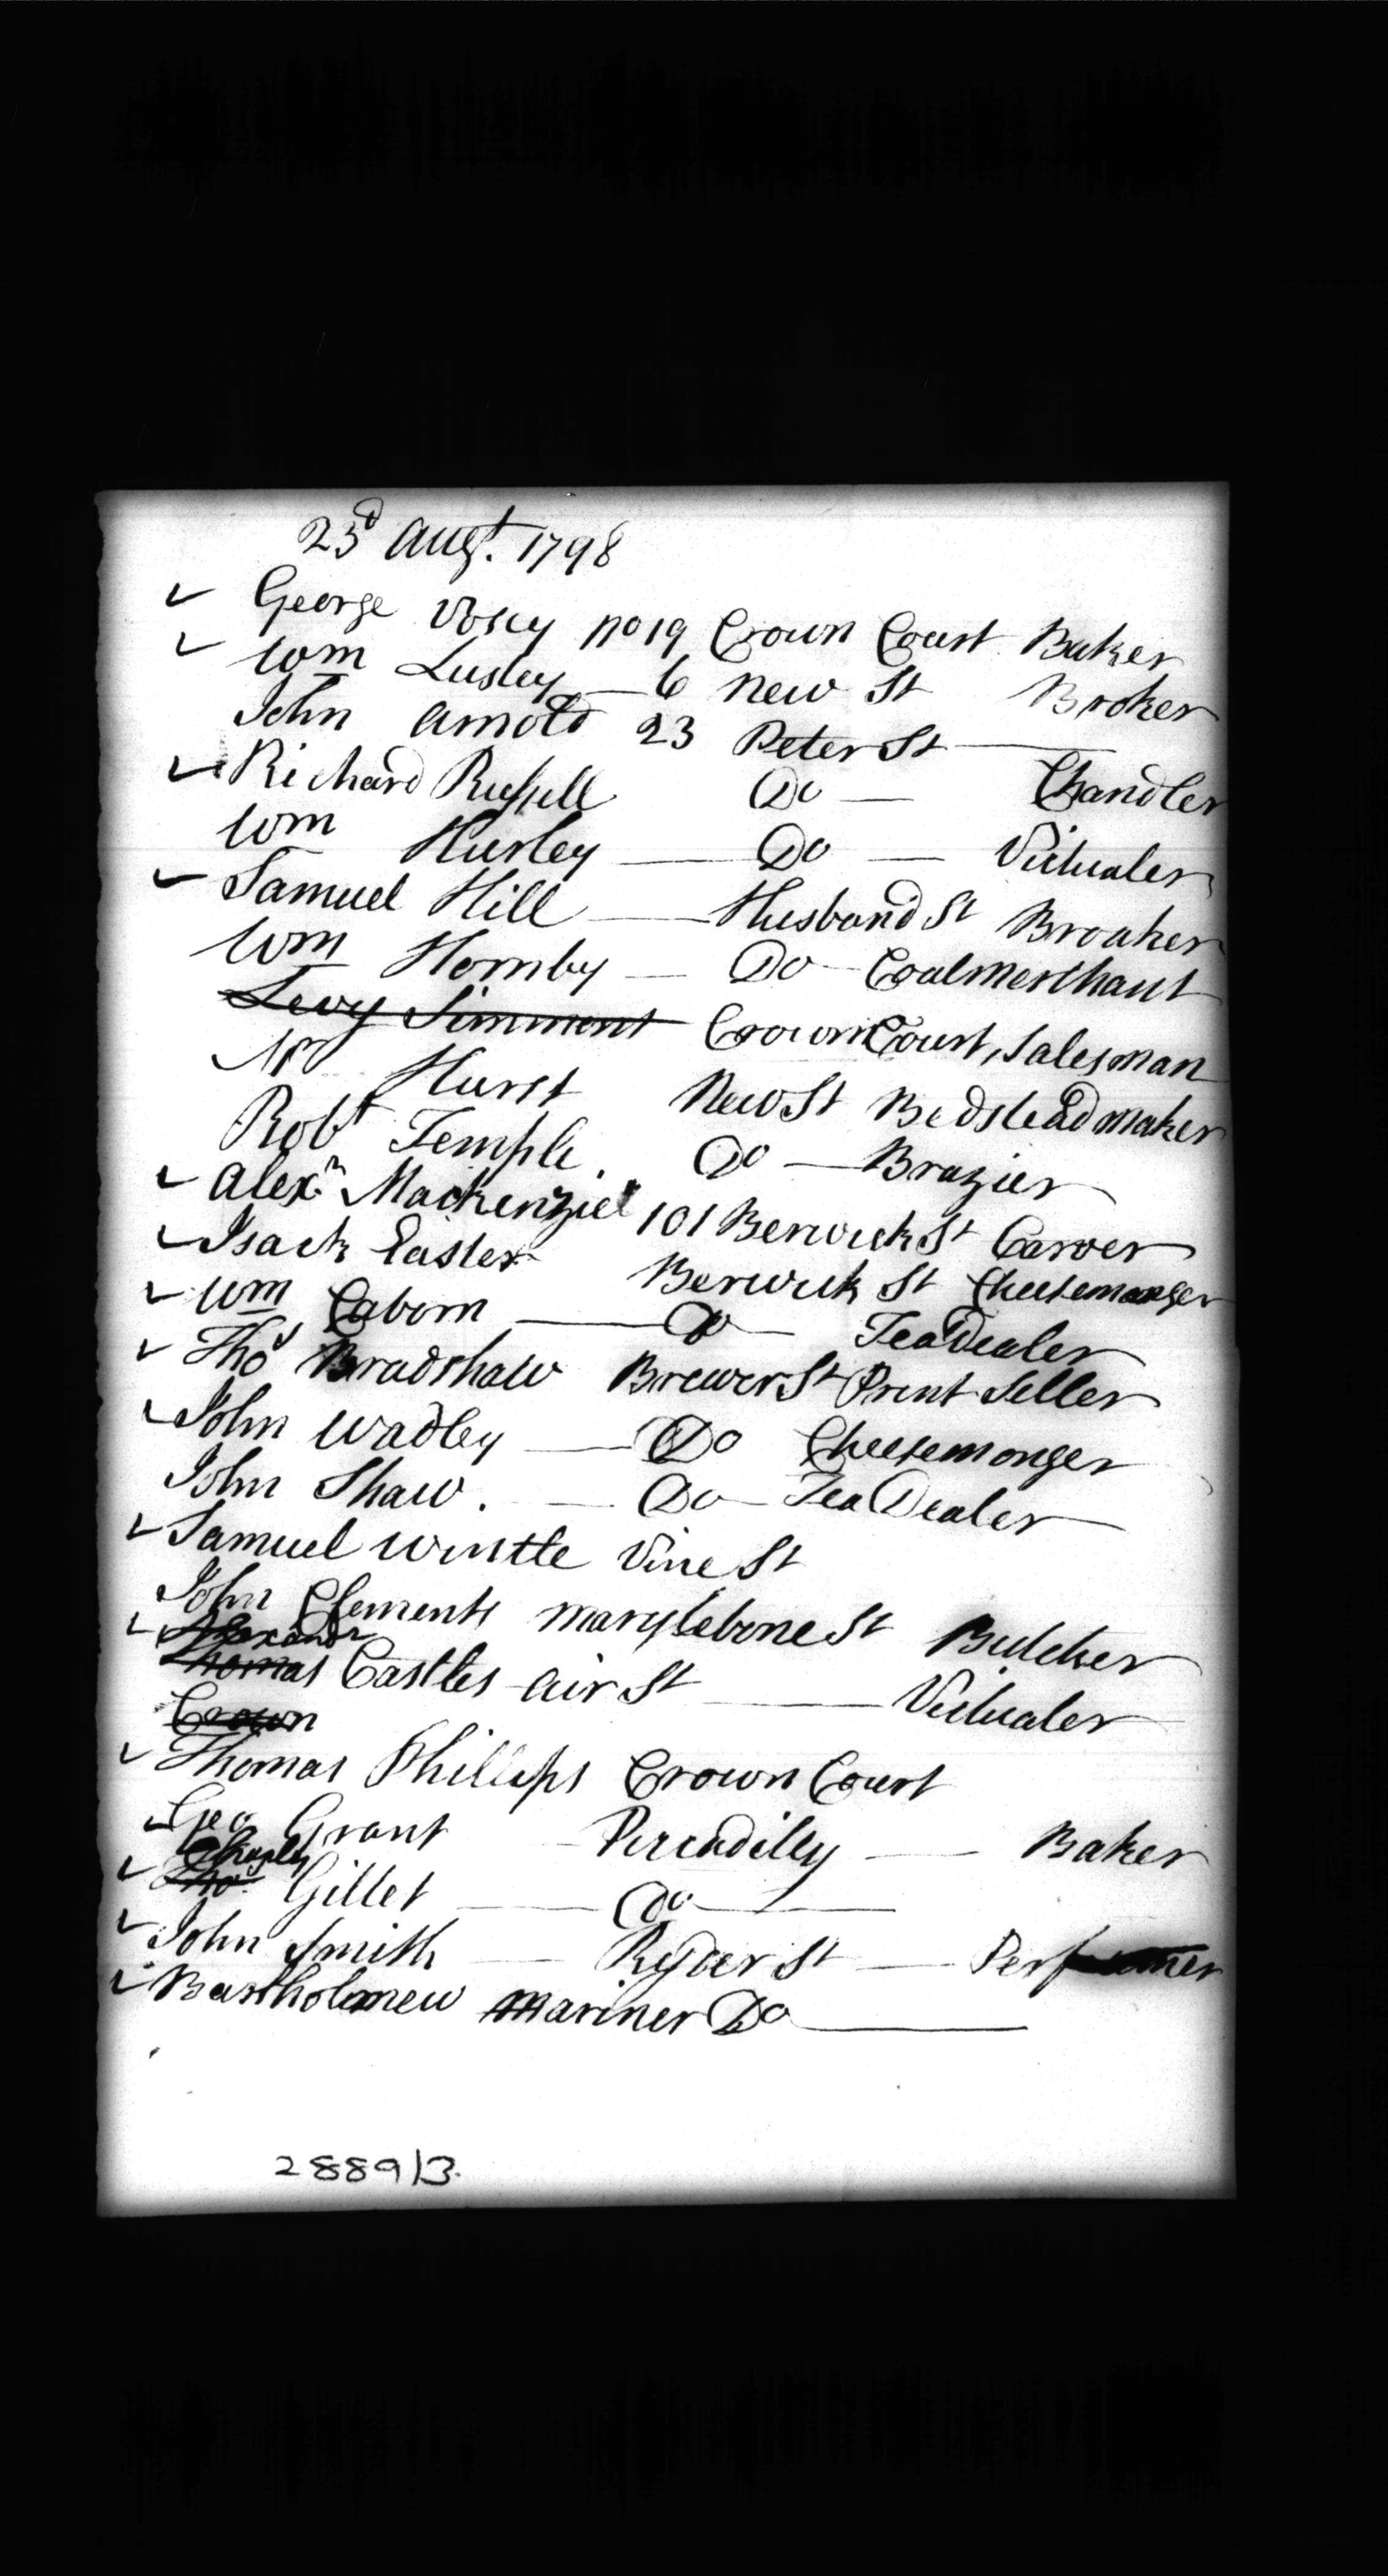 23d Augt. 1798
George Vosey No 19 Crown Court Baker
Wm Lusley — 6 New St Broker
John Arnold 23 Peter St —
Richard Russell Do — Chandler
Wm Hurley — Do — Victualer
Samuel Hill — Husband St Broaker
Wm Hornby — Do — Coalmerchant
Levy Simment Crown Court, Salesman
Mr Hurst New St Bedstead maker
Robt Temple. Do — Brazier
Alexr Mackenzie 101 Berwick St Carver
Isack Easter Berwick St Cheesemonger
Wm Caborn — Do — Tea Dealer
Thos Bradshaw Brewer St Print Seller
John Wadley — Do Cheesemonger
John Shaw. — Do — Tea Dealer
Samuel Wintle Vine St
John Clements Marylebone St Butcher
Alexandr
Thomas Castles Air St — Victualer
Crown
Thomas Phillips Crown Court
Geo Grant Piccadilly — Baker
Charles
Tho Gillet — Do —
John Smith — Ryder St — Perfumer
Bartholomew Mariner Do —
2889/3.